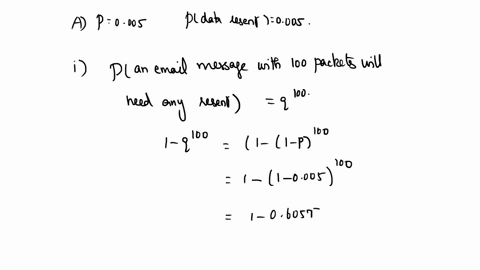 A) P=0.005 P(data resent)=0.005.
i) P(an email message with 100 packets will
need any resent) = q^100.
1-q^100 = (1-(1-p)^100
= 1-(1-0.005)^100
= 1-0.6057